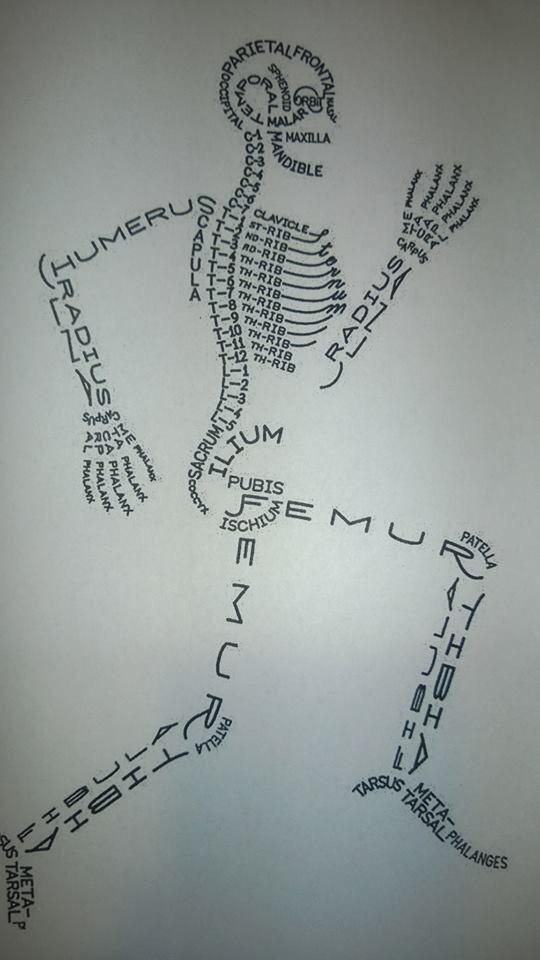 PARIETAL
FRONTAL
OCCIPITAL
TEMPORAL
SPHENOID
ORBIT
NASAL
MALAR
MAXILLA
MANDIBLE
C-1
C-2
C-3
C-4
C-5
C-6
C-7
HUMERUS
SCAPULA
CLAVICLE
sternum
T-1
T-2
T-3
T-4
T-5
T-6
T-7
T-8
T-9
T-10
T-11
T-12
ST-RIB
ND-RIB
RD-RIB
TH-RIB
TH-RIB
TH-RIB
TH-RIB
TH-RIB
TH-RIB
TH-RIB
TH-RIB
TH-RIB
L-1
L-2
L-3
L-4
L-5
RADIUS
ULNA
CARPUS
METACARPAL
PHALANX
PHALANX
PHALANX
PHALANX
PHALANX
RADIUS
ULNA
CARPUS
METACARPAL
PHALANX
PHALANX
PHALANX
PHALANX
PHALANX
SACRUM
COCCYX
ILIUM
PUBIS
ISCHIUM
FEMUR
PATELLA
TIHBIA
FIBULA
TARSUS
META-
TARSAL
PHALANGES
EMUR
PATELLA
TIHBIA
FIBULA
SUS
META-
TARSAL
P